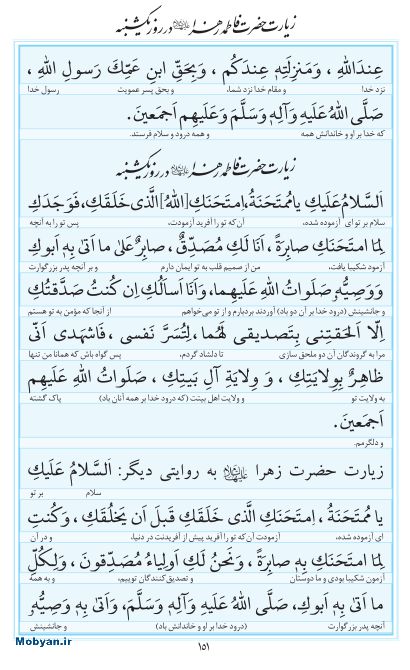 زیارت حضرت فاطمه زهرا در روز یکشنبه
عِندَاللهِ ، وَمَنزِلَتِهِ عِندَکُم ، وَبِحَقِّ ابنِ عَمِّكَ رَسولِ اللهِ ،
نزد خدا و مقام خدا نزد شما، و بحق پسر عمویت رسول خدا
صَلَّی اللهُ عَلَیهِ وَآلِهِ وَسَلَّمَ وَعَلَیهِم اَجمَعینَ.
که خدا بر او و خاندانش همه و همه درود و سلام فرستد.
زیارت حضرت فاطمه زهرا در روز یکشنبه
اَلسَّلامُ عَلَیكِ یا مُمتَحَنَةُ، اِمتَحَنَكِ [اللهُ] الَّذی خَلَقَكِ، فَوَجَدَكِ
سلام بر تو ای آزموده شده، آن‌که تو را آفرید آزمودت، پس تو را به آنچه
لِمَا امتَحَنَكِ صابِرَةً ، اَنَا لَكِ مُصَدِّقٌ ، صابِرٌ عَلیٰ ما اَتیٰ بِهِ اَبوكِ
آزمود شکیبا یافت، من از صمیم قلب به تو ایمان دارم و بر آنچه پدر بزرگوارت
وَ وَصِیُّهُ صَلَواتُ اللهِ عَلَیهِما، وَاَنَا اَسأَلُكِ اِن کُنتُ صَدَّقتُكِ
و جانشینش (درود خدا بر آن دو باد) آوردند بردبارم و از تو می‌خواهم از آنجا که مؤمن به تو هستم
اِلّا اَلحَقتِنی بِتَصدیقی لَهُما، لِتُسَرَّ نَفسی ، فَاشهَدی اَنّی
مرا به گروندگان آن دو ملحق سازی تا دلشاد گردم، پس گواه باش که همانا من تنها
ظاهِرٌ بِوِلایَتِكِ ، وَ وِلایَةِ آلِ بَیتِكِ ، صَلَواتُ اللهِ عَلَیهِم
به ولایت تو و ولایت اهل بیتت (که درود خدا بر همه آنان باد) پاک گشته
اَجمَعینَ.
و دلگرمم.
زیارت حضرت زهرا به روایتی دیگر: اَلسَّلامُ عَلَیكِ
سلام بر تو
یا مُمتَحَنَةُ ، اِمتَحَنَكِ الَّذی خَلَقَكِ قَبلَ اَن یَخلُقَكِ ، وَکُنتِ
ای آزموده شده، آزمودت آن که تو را آفرید پیش از آفریدنت در دنیا، و در آن
لِمَا امتَحَنَكِ بِهِ صابِرَةً ، وَنَحنُ لَكِ اَولِیاءُ مُصَدِّقونَ ، وَلِکُلِّ
آزمون شکیبا بودی و ما دوستان و تصدیق کنندگان توییم، و به همه
ما اَتیٰ بِهِ اَبوكِ، صَلَّی اللهُ عَلَیهِ وَآلِهِ وَسَلَّمَ، وَاَتیٰ بِهِ وَصِیُّهُ
آنچه پدر بزرگوارت (درود خدا بر او و خاندانش باد) و جانشینش
۱۵۱
Mobyan.ir